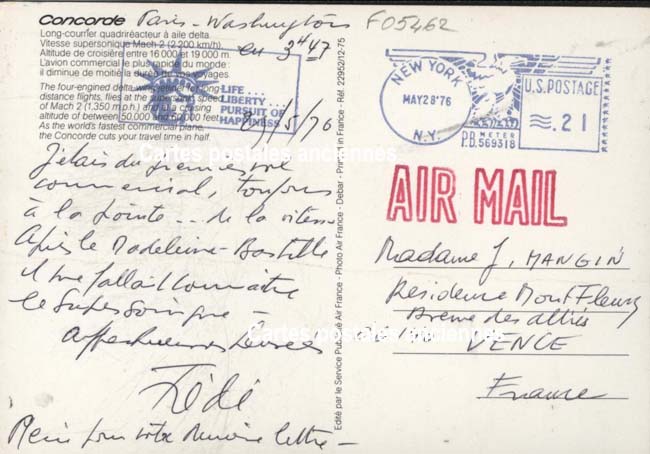 Concorde Paris - Washington
en 3h47
F05462
Long-courrier quadriréacteur à aile delta.
Vitesse supersonique Mach 2 (2.200 km/h).
Altitude de croisière entre 16 000 et 19 000 m.
L'avion commercial le plus rapide du monde:
il diminue de moitié la durée de vos voyages.
The four-engined delta-wing jetliner for long-
distance flights, flies at the supersonic speed
of Mach 2 (1,350 m.p.h.) and at a cruising
altitude of between 50,000 and 60,000 feet.
As the world's fastest commercial plane,
the Concorde cuts your travel time in half.
LIFE...
LIBERTY...
PURSUIT OF
HAPPINESS
/5/76
NEW YORK
MAY 28 '76
N.Y.
U.S. POSTAGE
.21
P.B. METER
P.B. 569318
AIR MAIL
J'étais du premier vol
commercial, toujours
à la pointe... de la vitesse
Après le Madeleine-Bastille
il me fallait connaître
le supersonique -
Affectueuses pensées
Dédé
Merci pour votre dernière lettre -
Madame J. MANGIN
Résidence Mont Fleury
Avenue des alliés
VENCE
France
Edité par le Service Publicité Air France - Photo Air France - Debar - Printed in France - Réf. 22952/12-75
Cartes postales anciennes
Cartes postales anciennes